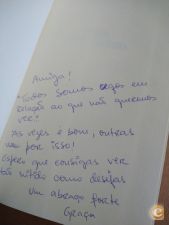 Amiga!
"Todos somos cegos em
relação ao que não queremos
ver!"
Às vezes é bom, outras
nem por isso!
Espero que consigas ver
tão nítido como desejas
Um abraço forte
Graça